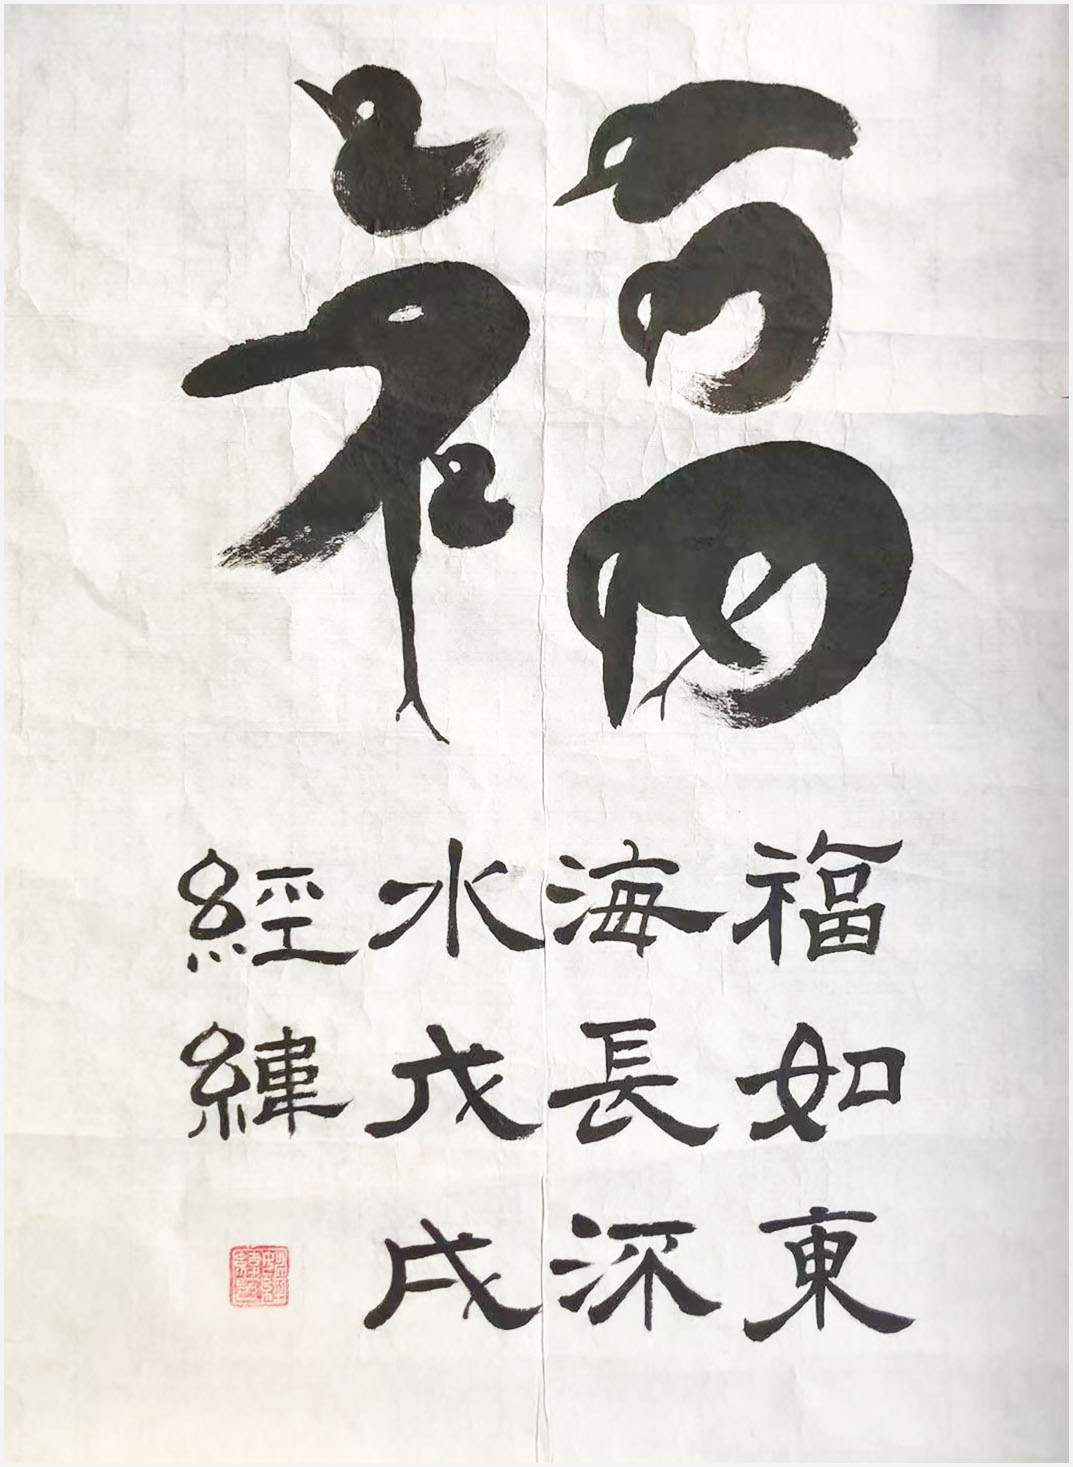 福
福如東
海長深
水戊戌
經緯